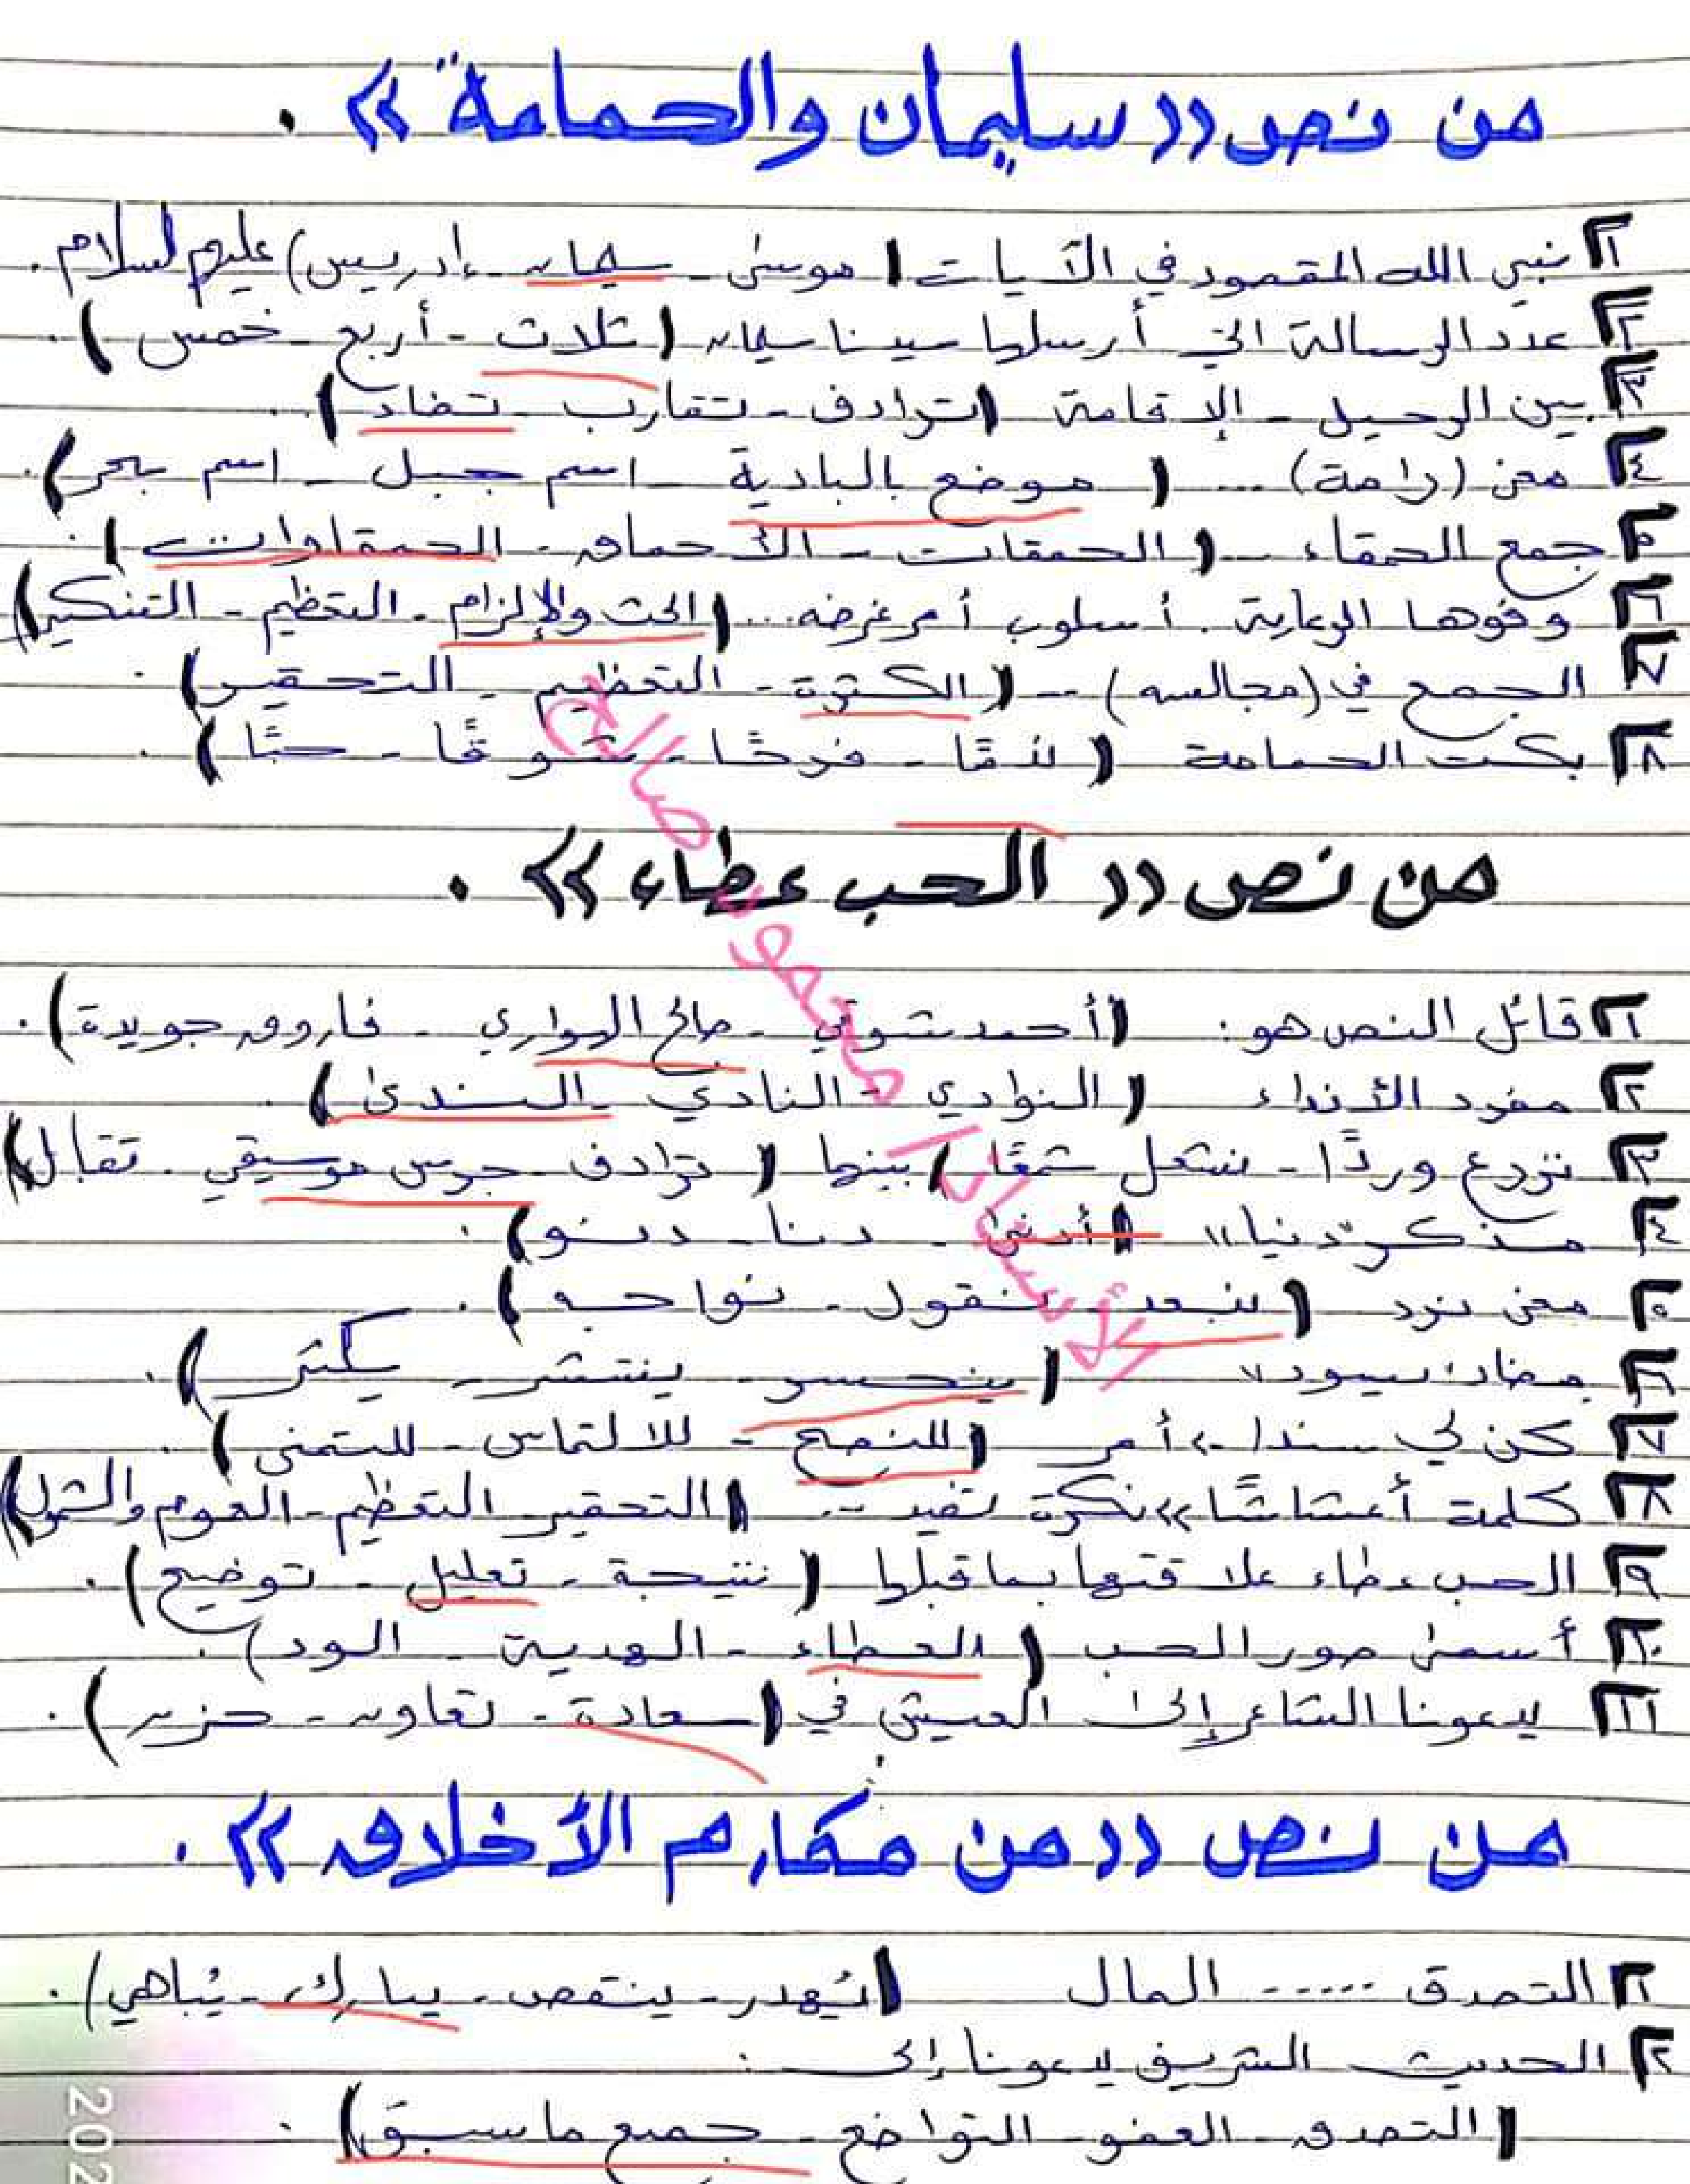 من نص «سليمان والحمامة» .
١ نبي الله المقصود في الآيات (موسى - سليمان - إدريس) عليهم السلام .
٢ عدد الرسالة التي أرسلها سيدنا سليمان (ثلاث - أربع - خمس) .
٣ بين الرحيل - الإقامة (ترادف - تقارب - تضاد) .
٤ معنى (رامة) ... (موضع بالبادية - اسم جبل - اسم بحر) .
٥ جمع الحمقاء .. (الحمقات - الأحماق - الحمقاوات) .
٦ وخوها الرعاية . أسلوب أمر غرضه ... (الحث والإلزام - التعظيم - التنكير)
٧ الجمع في (مجالسه) -- (الكثرة - التعظيم - التحقير) .
٨ بكت الحمامة ( - فرحًا - شوقًا - حبًّا) .
من نص «الحب عطاء» .
١ قائل النص هو : (أحمد شوقي - صالح الهواري - فاروق جويدة) .
٢ مفرد الأنداء (النوادي - النادي - الندى) .
٣ نزرع وردًا - نشعل شمعًا) بينها (ترادف - جرس موسيقي - تقابل)
٤ مذكر "دنيا" (أدنى - دنا - دنو) .
٥ معنى نرد (نبعد - نقول - نواجه) .
٦ مضاد "يسود" (ينحسر - ينتشر - يكثر) .
٧ كن لي سندا -> أمر (للنصح - للالتماس - للتمنى) .
٨ كلمة أعشاشًا» نكرة تفيد .. (التحقير - التعظيم - العموم والشمول)
٩ الحب عطاء علاقتها بما قبلها (نتيجة - تعليل - توضيح) .
١٠ أسمى صور الحب (العطاء - الهدية - الود) .
١١ يدعونا الشاعر إلى العيش في (سعادة - تعاون - حزن) .
من نص «من مكارم الأخلاق» .
١ التصدق ..... المال (يُهدر - ينقص - يبارك - يُباهي) .
٢ الحديث الشريف يدعونا إلى :
(التصدق - العفو - التواضع - جميع ما سبق) .
الأستاذ محمود صالح
202